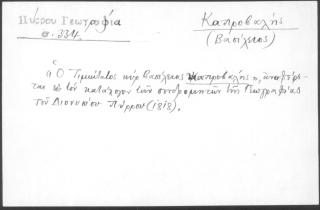 Πύρρου Γεωγραφία
σ. 334.
Καπροβαλής
(Βασίλειος)
"Ὁ Τιμιώτατος κύρ Βασίλειος Καπροβαλής", ἀναφέρε-
ται εἰς τόν κατάλογον τῶν συνδρομητῶν τῆς Γεωγραφίας
τοῦ Διονυσίου Πύρρου (1818).